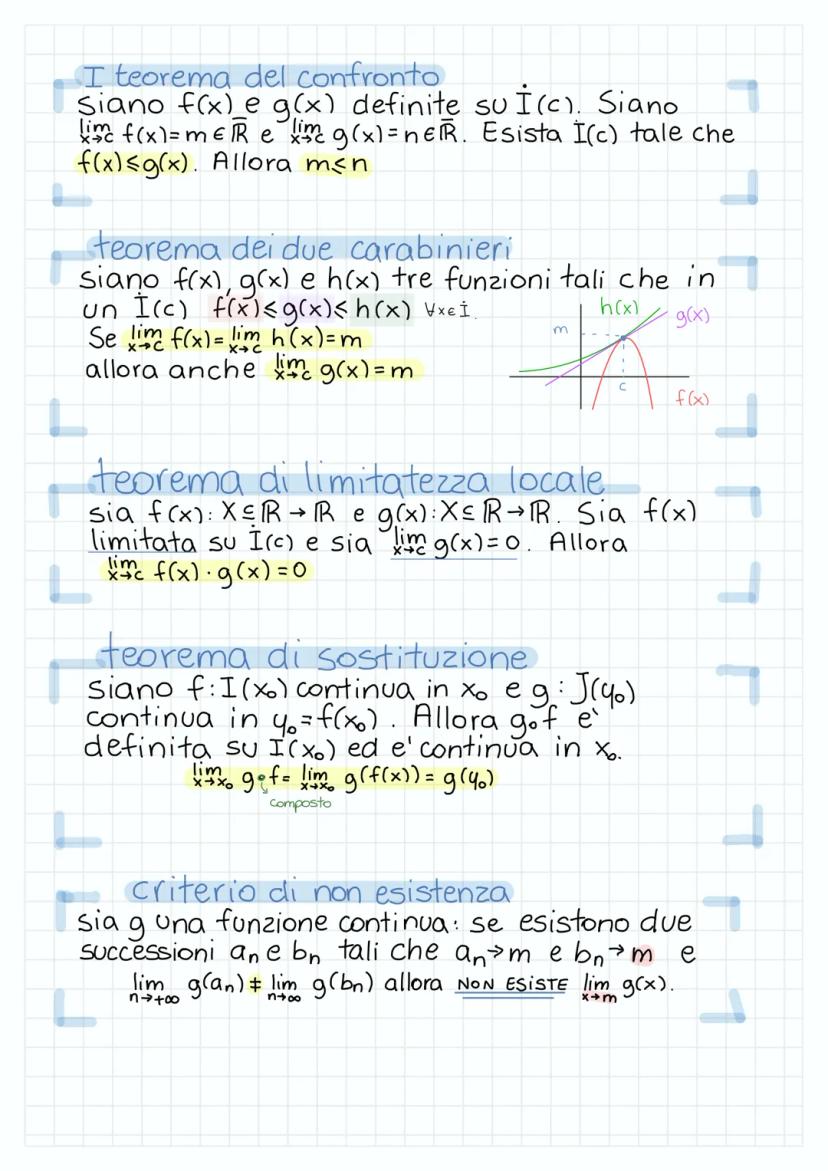 I teorema del confronto
siano f(x) e g(x) definite su İ(c). Siano
lim x→c f(x)=m∈R̄ e lim x→c g(x)=n∈R̄. Esista İ(c) tale che
f(x)≤g(x). Allora m≤n
teorema dei due carabinieri
siano f(x), g(x) e h(x) tre funzioni tali che in
un İ(c) f(x)≤g(x)≤h(x) ∀x∈İ.
Se lim x→c f(x)=lim x→c h(x)=m
allora anche lim x→c g(x)=m
h(x)
g(x)
m
c
f(x)
teorema di limitatezza locale
sia f(x): X⊆ℝ→ℝ e g(x):X⊆ℝ→ℝ. Sia f(x)
limitata su İ(c) e sia lim x→c g(x)=0. Allora
lim x→c f(x)·g(x)=0
teorema di sostituzione
siano f:I(x₀) continua in x₀ e g:J(y₀)
continua in y₀=f(x₀). Allora g∘f e`
definita su I(x₀) ed e' continua in x₀.
lim x→x₀ g∘f= lim x→x₀ g(f(x))=g(y₀)
composto
criterio di non esistenza
sia g una funzione continua: se esistono due
successioni aₙ e bₙ tali che aₙ→m e bₙ→m e
lim n→+∞ g(aₙ)≠lim n→∞ g(bₙ) allora NON ESISTE lim x→m g(x).